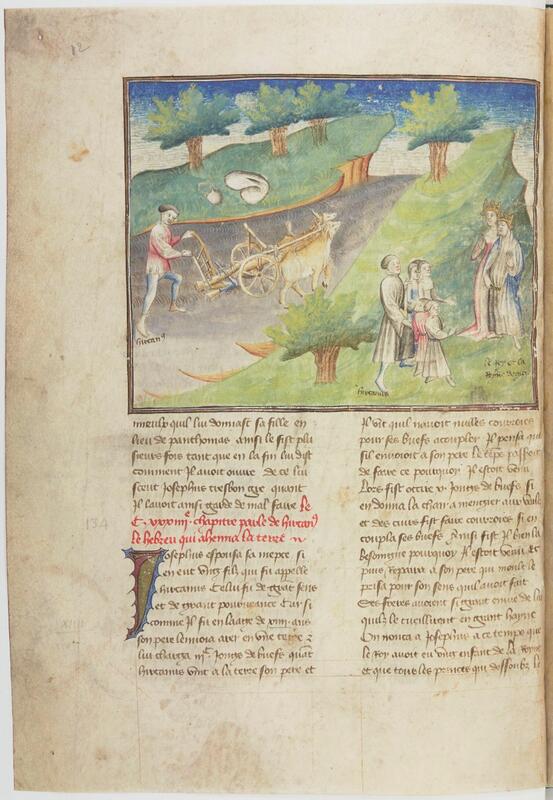 12
hircan9
hircanus
le roy et la
royne
mieulx quil lui donnast sa fille en
lieu de panthomas ainsi le fist plu
sieurs fois tant que en la fin lui dist
comment il avoit ouvre de ce lui
sceut Josephus tresbon gre quant
Il lavoit ainsi garde de mal faire Le
C. xxxiiij chapitre parle de hircan9
le hebreu qui ahenna la terre
134
Josephus espousa sa niepce si
en eut vng filz qui fu appelle
hircanus Celui fu de grant sens
et de grant pourveance Car si
comme il fu en laage de xiiij ans
son pere lenvoia arer en vne terre z
lui charga iijc Jougs de buefs quãt
hircanus vint a la terre son pere et
Il vit quil navoit nulles couroies
pour ses buefs acoupler Il pensa que
sil envoioit a son pere le tẽps passeroit
de faire ce pourquoy Il estoit venu
Lors fist occire x Jougs de buefs si
en donna la chair a mengier aux
et des cuirs fist faire couroies si en
coupla ses buefs Ainsi fist Il bien la
besoingne pourquoy Il estoit venu et
puis repaira a son pere qui moult le
prisa pour son sens quil avoit fait
Ses freres avoient si grant envie de lui
quilz le cueillirent en grant hayne
On nonca a Josephus a ce temps que
le Roy avoit eu vng enfant de la Royne
et que tous les princes qui dessoubz le